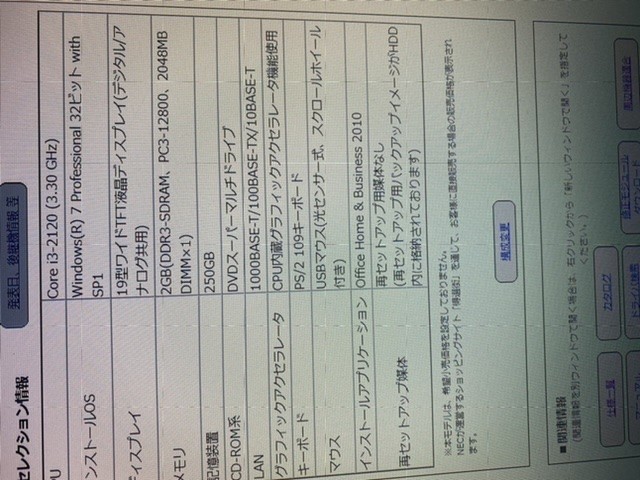 発表日、後継機情報 等
セレクション情報
PU Core i3-2120 (3.30 GHz)
ンストールOS Windows(R) 7 Professional 32ビット with
SP1
ディスプレイ 19型ワイドTFT液晶ディスプレイ(デジタル/ア
ナログ共用)
メモリ 2GB(DDR3-SDRAM、PC3-12800、2048MB
DIMM×1)
記憶装置 250GB
CD-ROM系 DVDスーパーマルチドライブ
LAN 1000BASE-T/100BASE-TX/10BASE-T
グラフィックアクセラレータ CPU内蔵グラフィックアクセラレータ機能使用
キーボード PS/2 109キーボード
マウス USBマウス(光センサー式、スクロールホイール
付き)
インストールアプリケーション Office Home & Business 2010
再セットアップ媒体 再セットアップ用媒体なし
(再セットアップ用バックアップイメージがHDD
内に格納されております)
※本モデルは、希望小売価格を設定しておりません。
NECが運営するショッピングサイト「得選街」を通じて、お客様に直接販売する場合の販売価格が表示され
ます。
構成変更
■ 関連情報
(関連情報を別ウィンドウで開く場合は、右クリックから「新しいウィンドウで開く」を指定して
ください。)
仕様一覧 カタログ